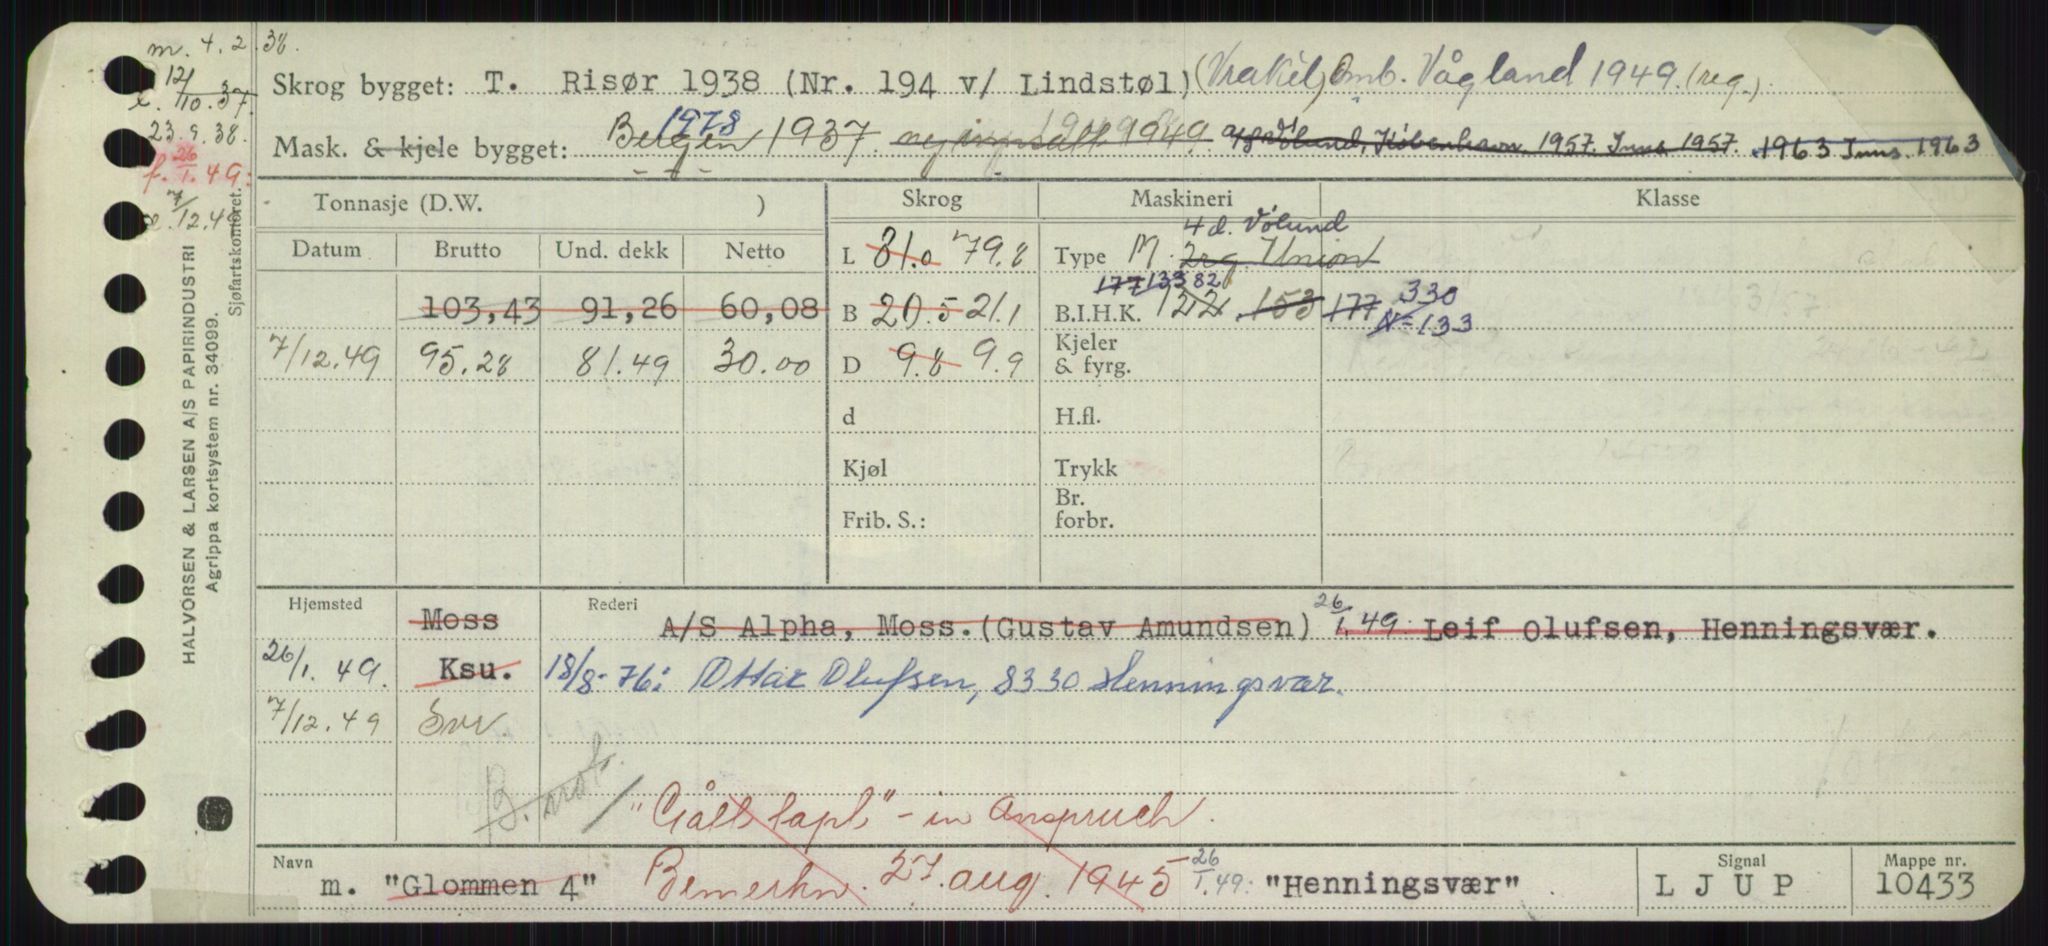 m. 4.2.38.
12/10.37.
23.9.38.
f. 26/1.49:
7/12.49
HALVORSEN & LARSEN A/S PAPIRINDUSTRI
Agrippa kortsystem nr. 34099.
Sjøfartskontoret.
Skrog bygget: T. Risør 1938 (Nr. 194 v/ Lindstøl) (Vrakèl) Omb. Vågland 1949. (reg.)
1978
Mask. & kjele bygget: Bergen 1937. ny innsatt 1949. Vølund, København 1957. Inns. 1957. 1963 Inns. 1963
Tonnasje (D.W. ) Skrog Maskineri Klasse
Datum Brutto Und. dekk Netto
4 d. Vølund
L 81.0 79.8 Type M. 2rg. Union
177 133 82
103,43 91,26 60,08 B 20.5 21.1 B.I.H.K. 122 153 177 330
N=133
7/12.49 95.28 81.49 30.00 D 9.8 9.9 Kjeler & fyrg.
d H.fl.
Kjøl Trykk
Frib. S.: Br. forbr.
Hjemsted Moss Rederi A/S Alpha, Moss. (Gustav Amundsen) 26/1.49. Leif Olufsen, Henningsvær.
26/1.49. Ksu. 18/8-76: Ottar Olufsen, 8330 Henningsvær.
7/12.49 Svv.
B. not.
"Gått tapt" - in Anspruch.
Navn m. "Glommen 4" Bemerkn. 27. aug. 1945 26/1.49: "Henningsvær" Signal LJUP Mappe nr. 10433